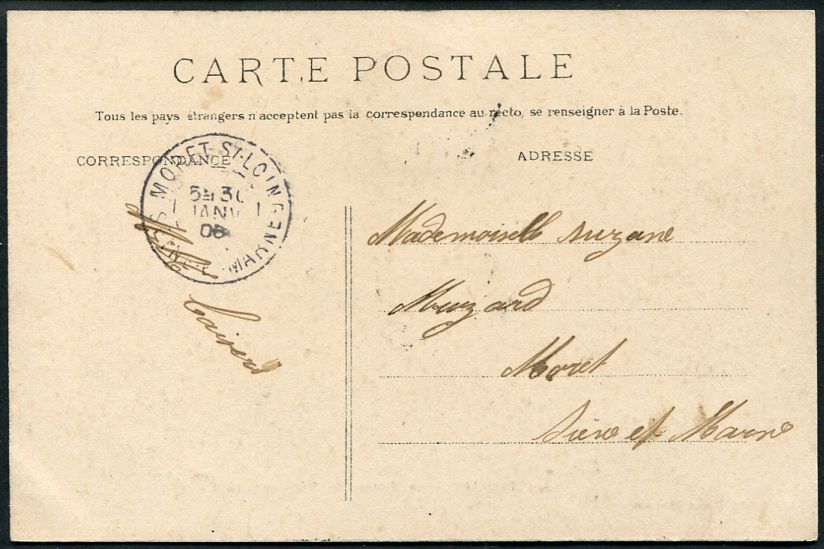 CARTE POSTALE
Tous les pays étrangers n'acceptent pas la correspondance au recto, se renseigner à la Poste.
CORRESPONDANCE
ADRESSE
MORET-ST-LOING
5E 30
JANV
06
SNE-ET-MARNE
Mille
baisers
Mademoiselle Suzane
Muzard
Moret
Seine et Marne